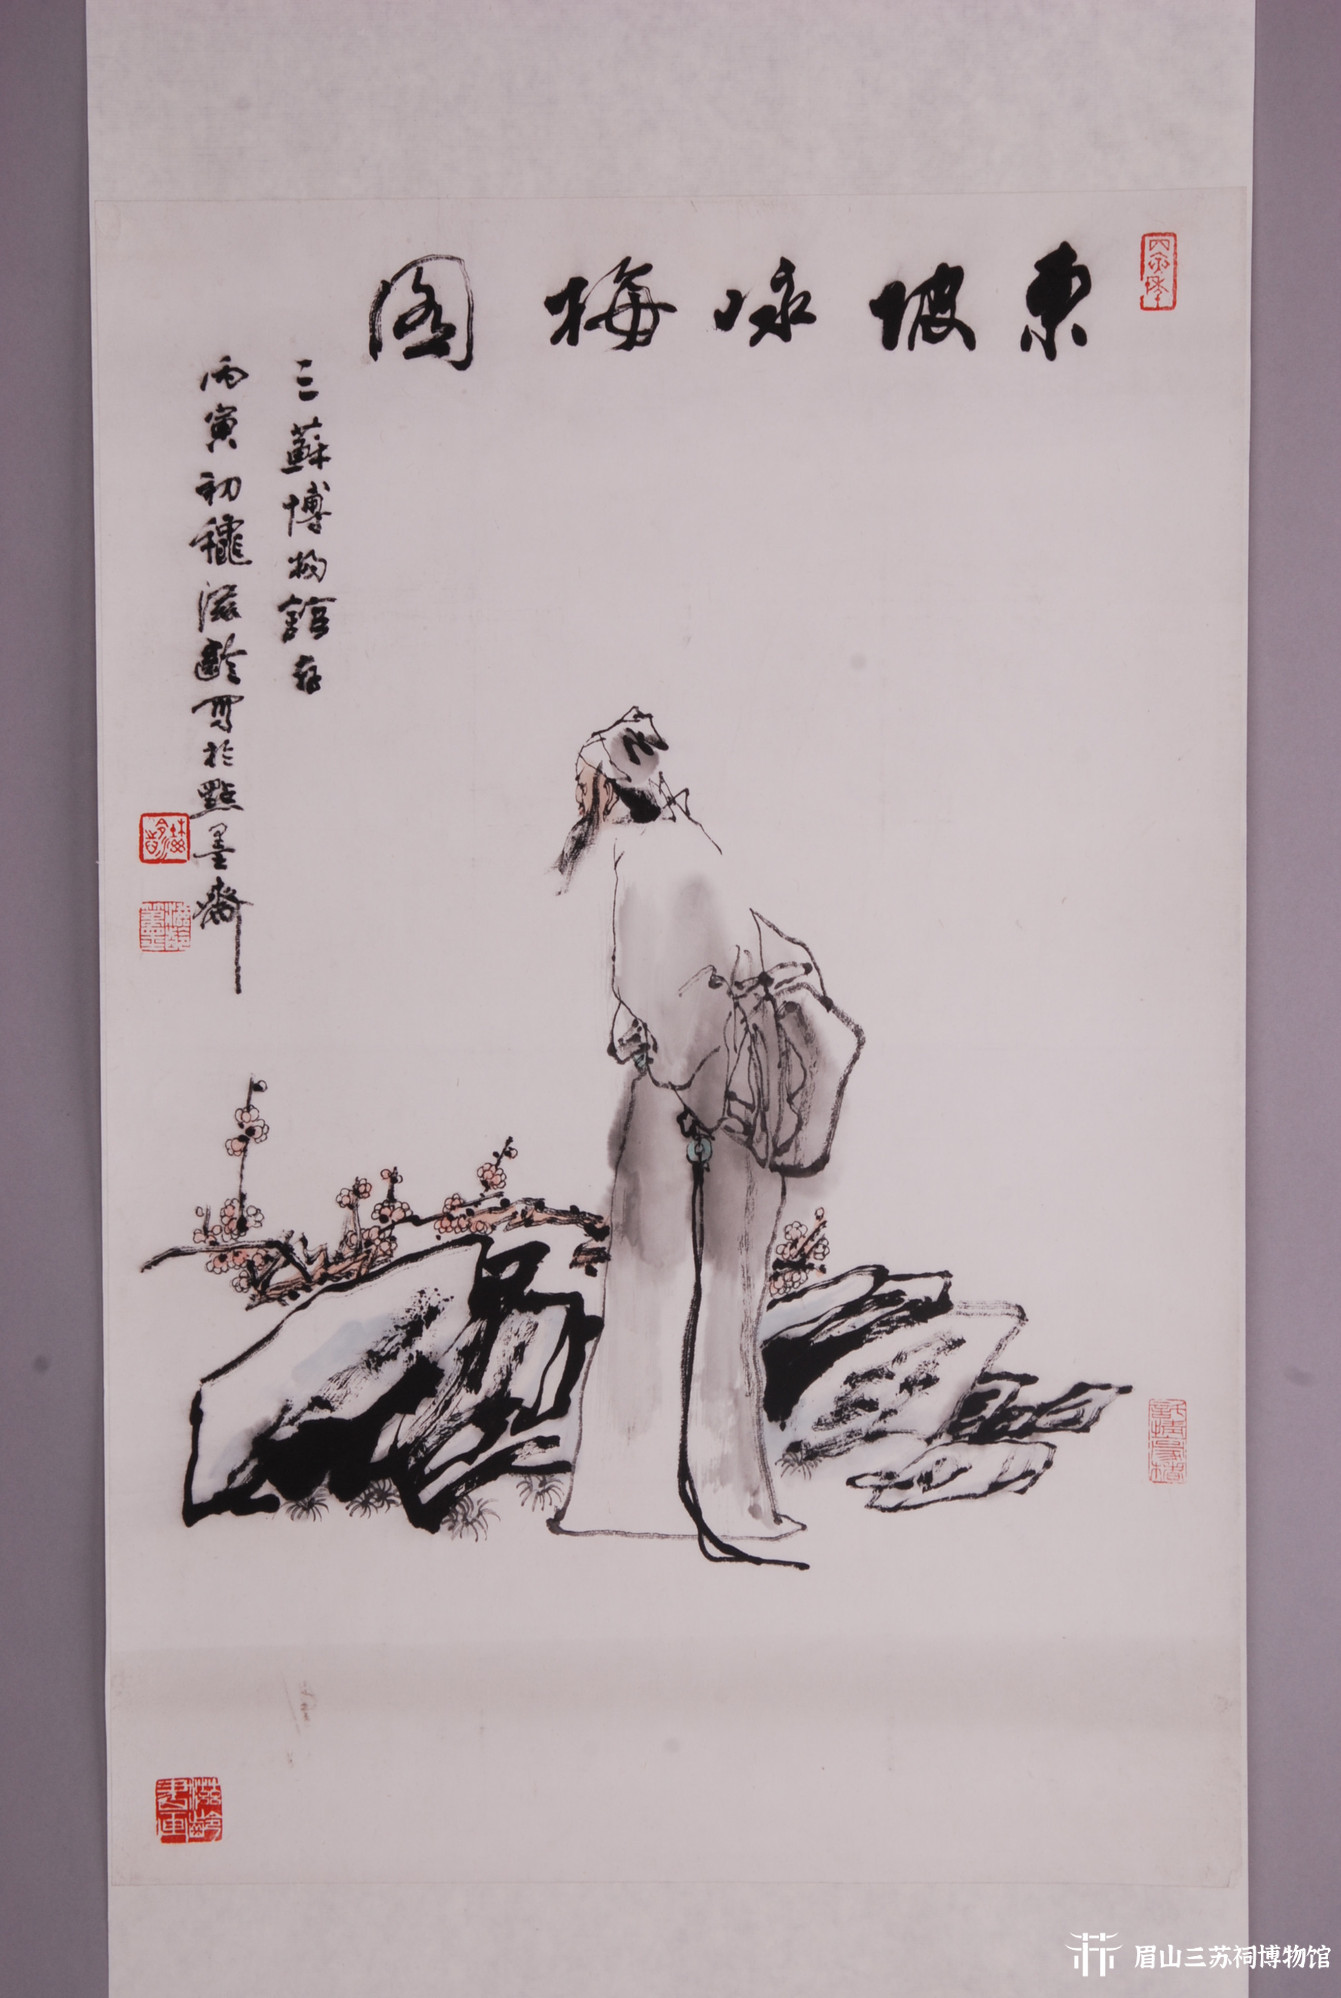 東坡咏梅图
三蘇博物館存
丙寅初穐滋齡写於點墨齋
滋齡書画
眉山三苏祠博物馆